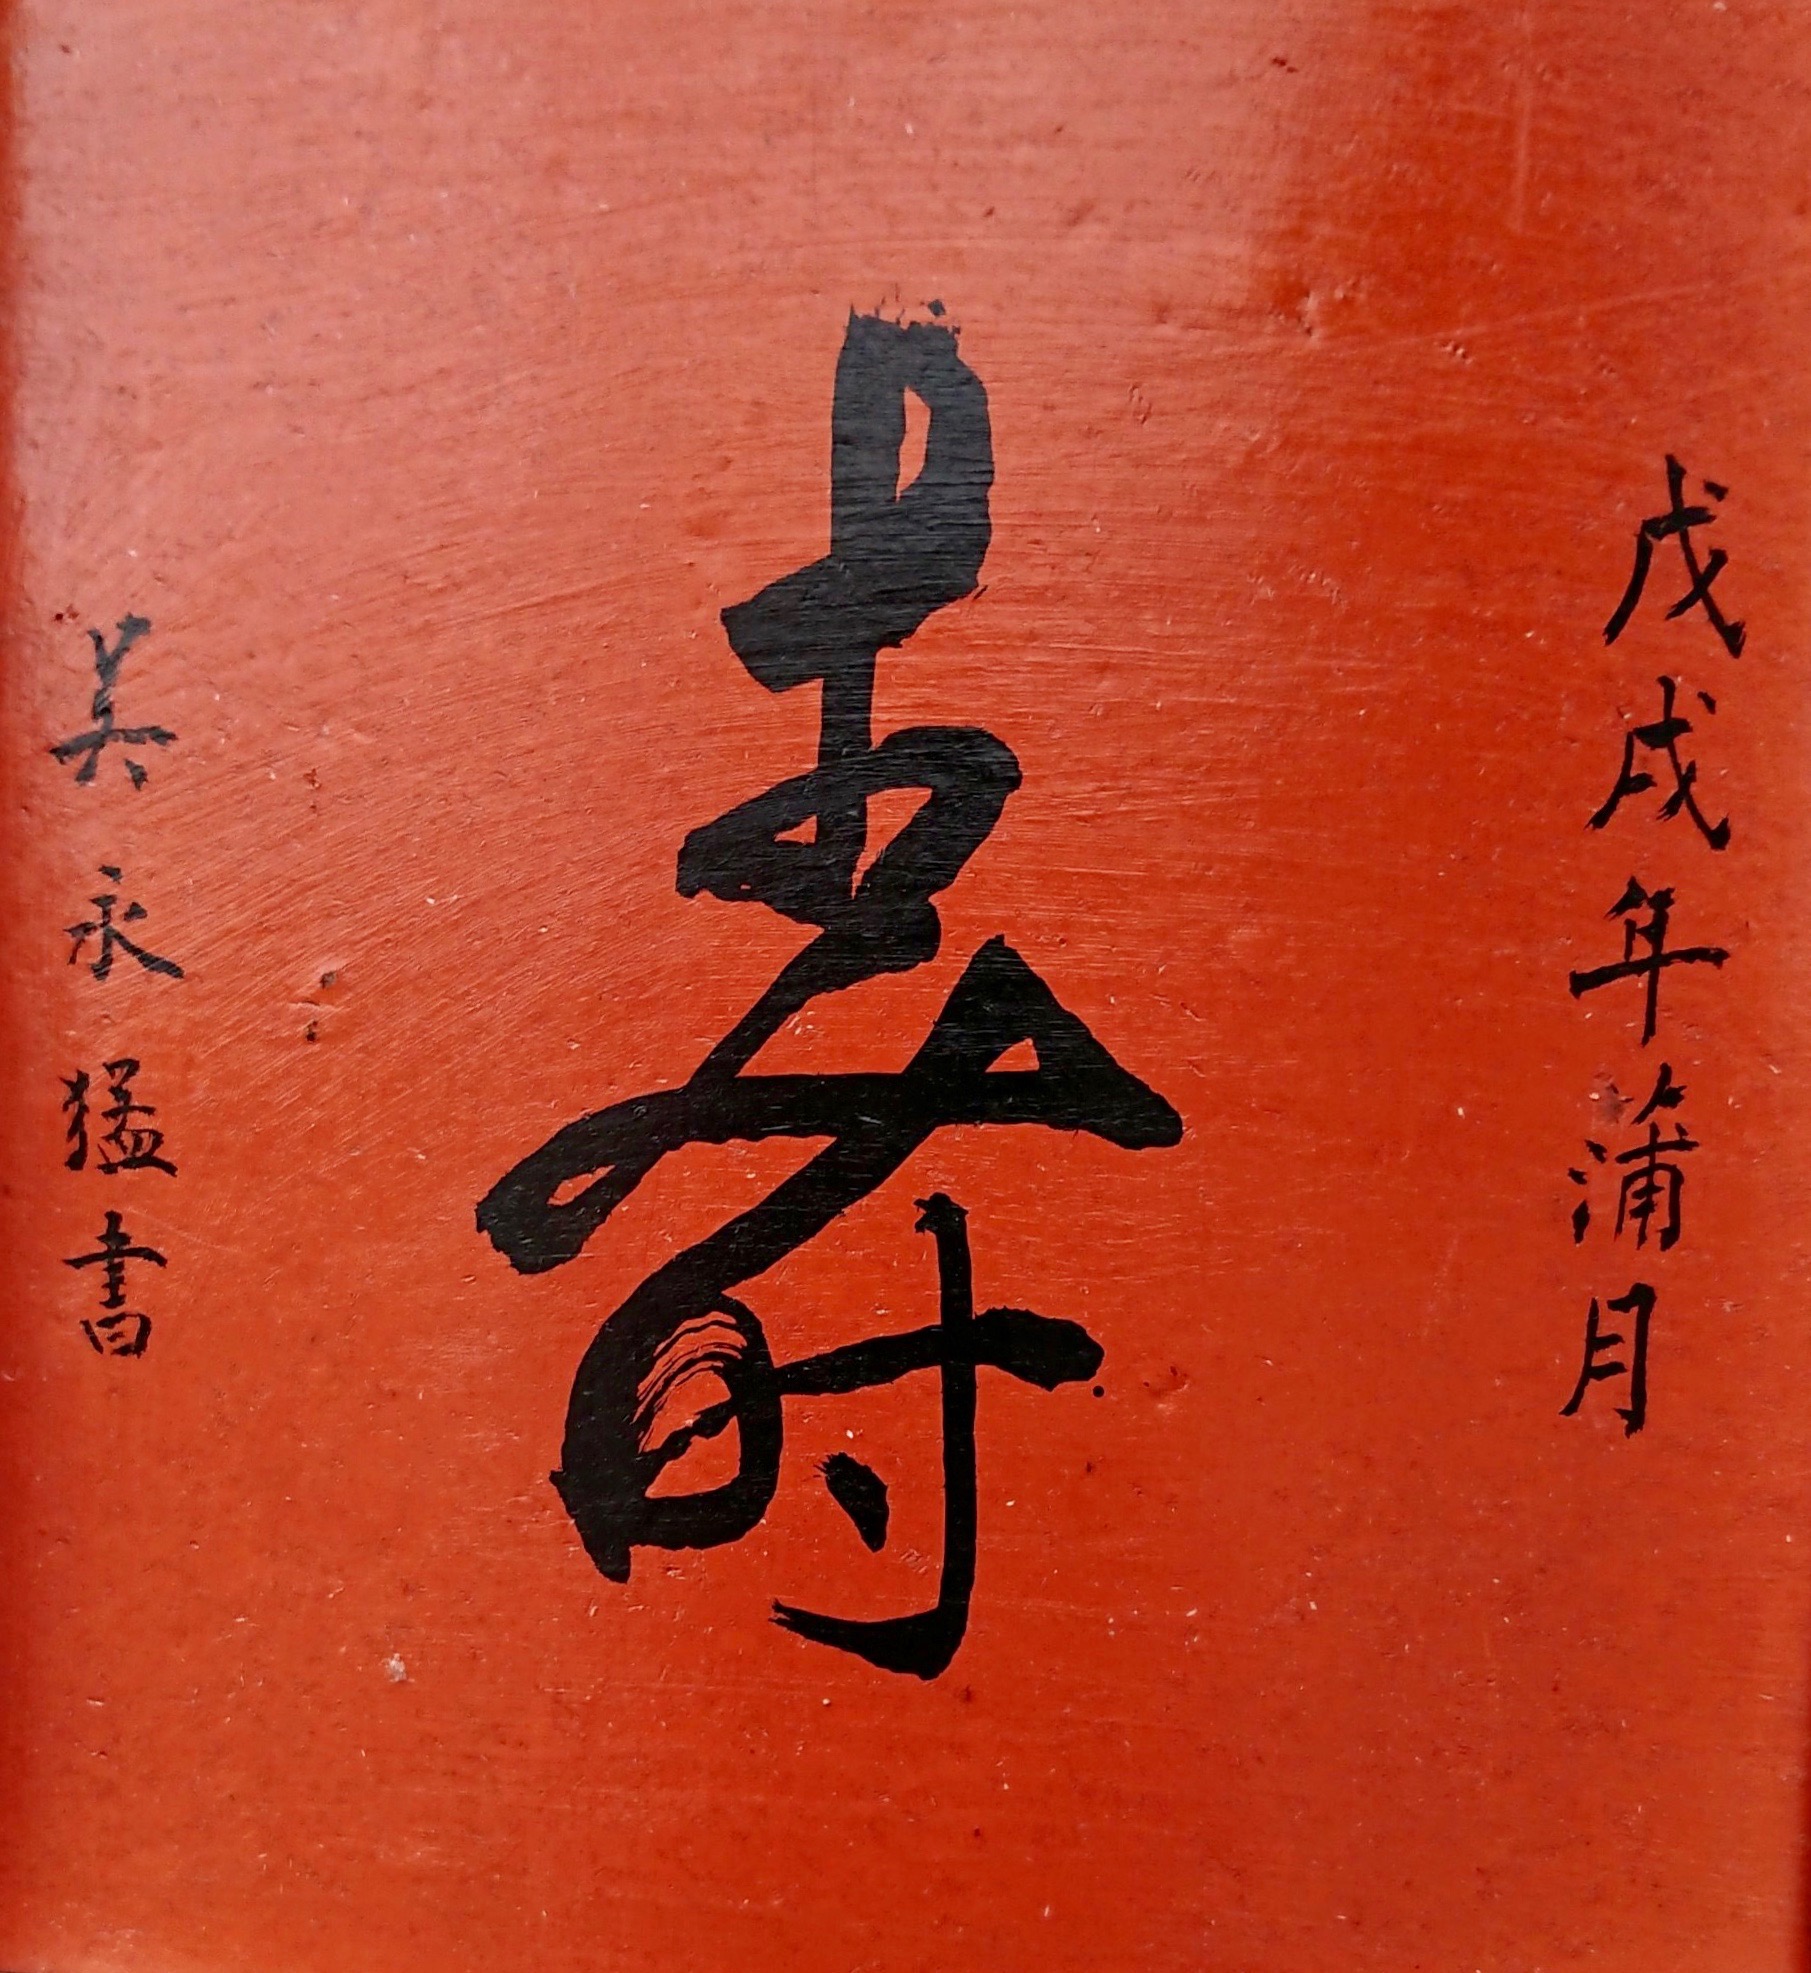 戊戌年蒲月
壽
吳永猛書